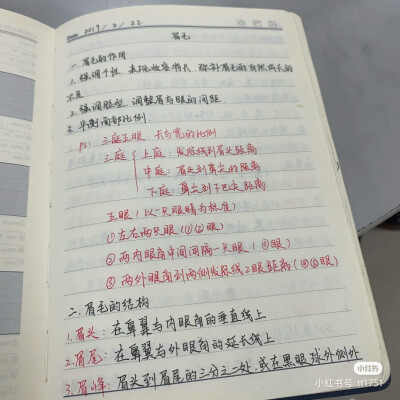 Date 2019 / 2 / 22
眉毛
一、眉毛的作用
1. 强调个性 表现妆容特长 弥补眉毛的自然成长的
不足
2. 强调脸型, 调整眉与眼的间距.
3. 平衡面部比例.
PS: 三庭五眼 长与宽的比例
三庭 上庭: 发际线到眉头距离
中庭: 眉头到鼻尖的距离
下庭: 鼻尖到下巴尖距离
五眼 (以一只眼睛为标准)
① 左右两只眼 (①②眼)
② 两内眼角中间间隔一只眼 (③眼)
③ 两外眼角到两侧发际线2眼距离 (④⑤眼)
二. 眉毛的结构
1. 眉头: 在鼻翼与内眼角的垂直线上
2. 眉尾: 在鼻翼与外眼角的延长线上
3. 眉峰: 眉头到眉尾的三分之二处, 或在黑眼球外侧外
小红书
小红书号: tt1751